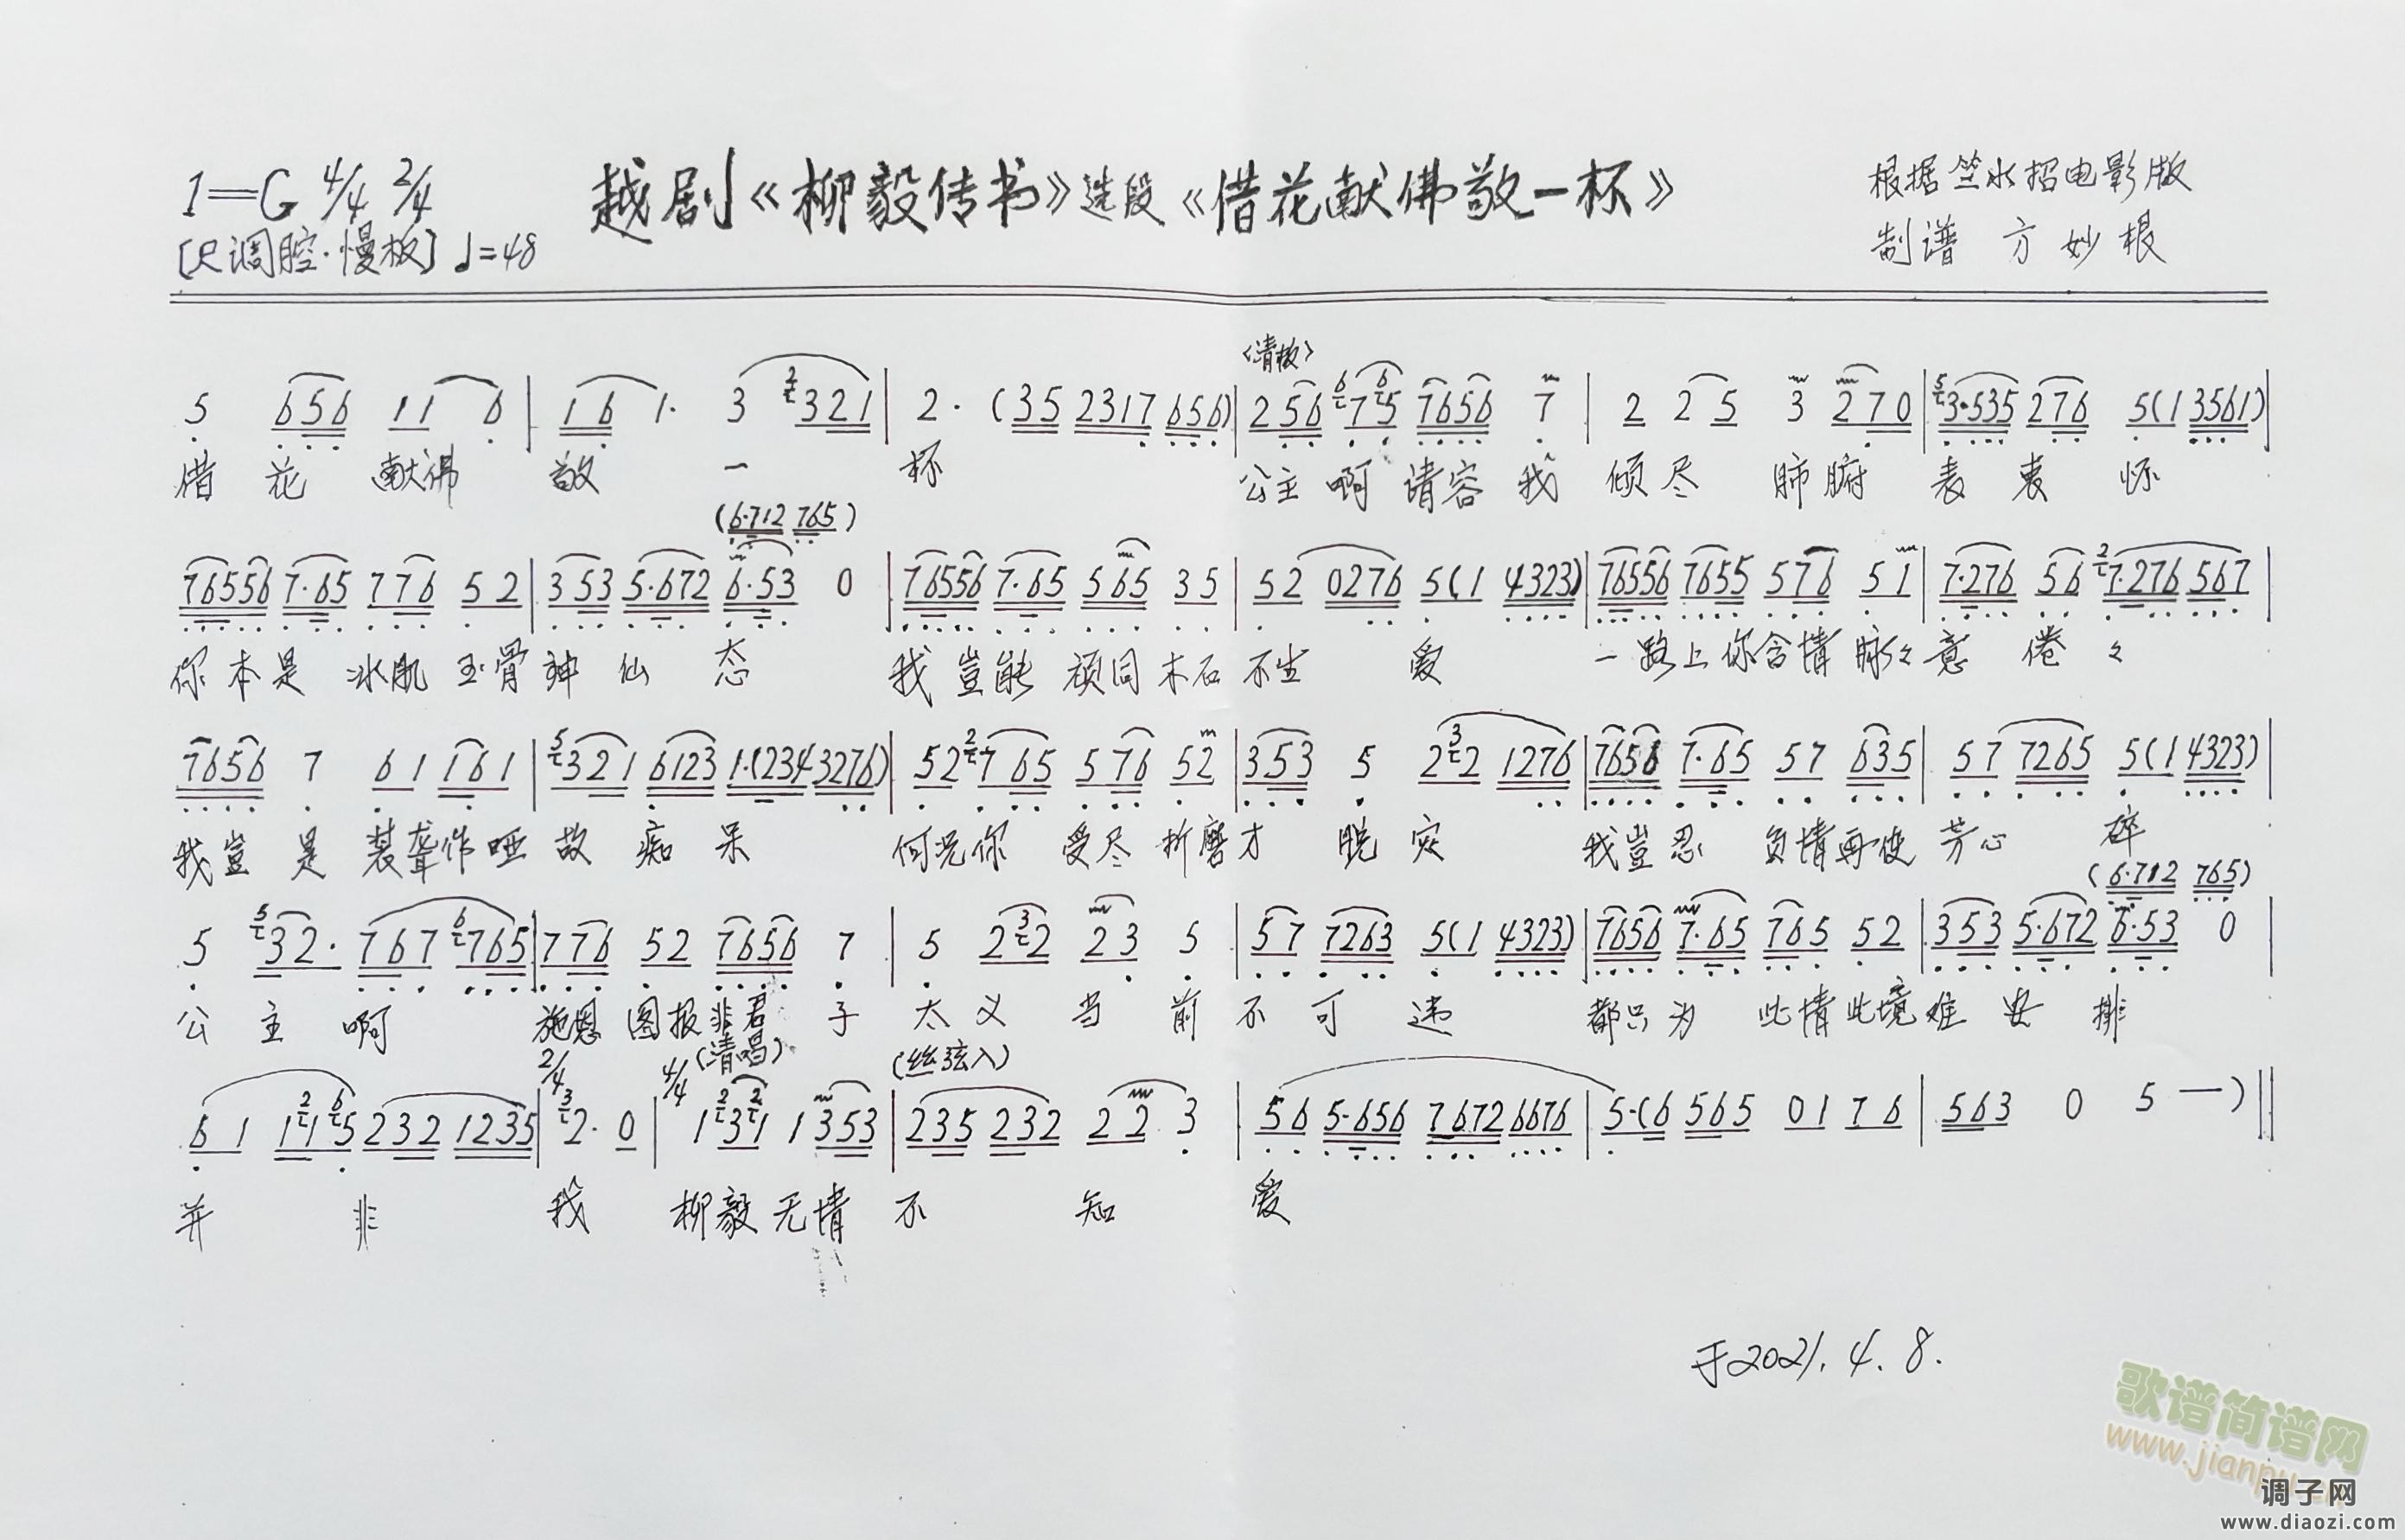 1=G 4/4 2/4 越剧《柳毅传书》选段《借花献佛敬一杯》 根据竺水招电影版
[尺调腔·慢板] ♩=48 制谱 方妙根
〈清板〉
5 656 11 6 | 16 1· 3 2321 | 2· (35 2317 656) | 256 6765 7656 7 | 2 25 3 270 | 53·535 276 5(1 3561) |
借 花 献佛 敬 一 杯 公主 啊 请容 我 倾尽 肺腑 表 衷 怀
(6·712 765)
76556 7·65 776 52 | 353 5·672 6·53 0 | 76556 7·65 565 35 | 52 0276 5(1 4323) | 76556 7655 576 51 | 7·276 56 27·276 567 |
你本是 冰肌 玉骨 神 仙 态 我岂能 顽同 木石 不生 爱 一路上你含情脉々意 倦 々
7656 7 61 161 | 5321 6123 1·(234 3276) | 52 2765 576 52 | 353 5 232 1276 | 7656 7·65 57 635 | 57 7265 5(1 4323) |
我岂 是 装聋作哑 故 痴 呆 何况你 受尽 折磨才 脱 灾 我岂忍 负情再使 芳心 碎
(6·712 765)
5 532· 767 6765 | 776 52 7656 7 | 5 232 23 5 | 57 7263 5(1 4323) | 7656 7·65 765 52 | 353 5·672 6·53 0 |
公 主 啊 施恩 图报非君 子 大 义 当 前 不 可 违 都只为 此情此境难 安 排
2/4 4/4 (清唱) (丝弦入)
61 12165 232 1235 | 32· 0 | 12321 1353 | 235 232 22 3 | 56 5·656 7672 6676 | 5·(6 565 01 76 | 563 0 5 —) ‖
并 非 我 柳毅无情 不 知 爱
于2021.4.8.
歌谱简谱网
www.jianpu
调子网
www.diaozi.com